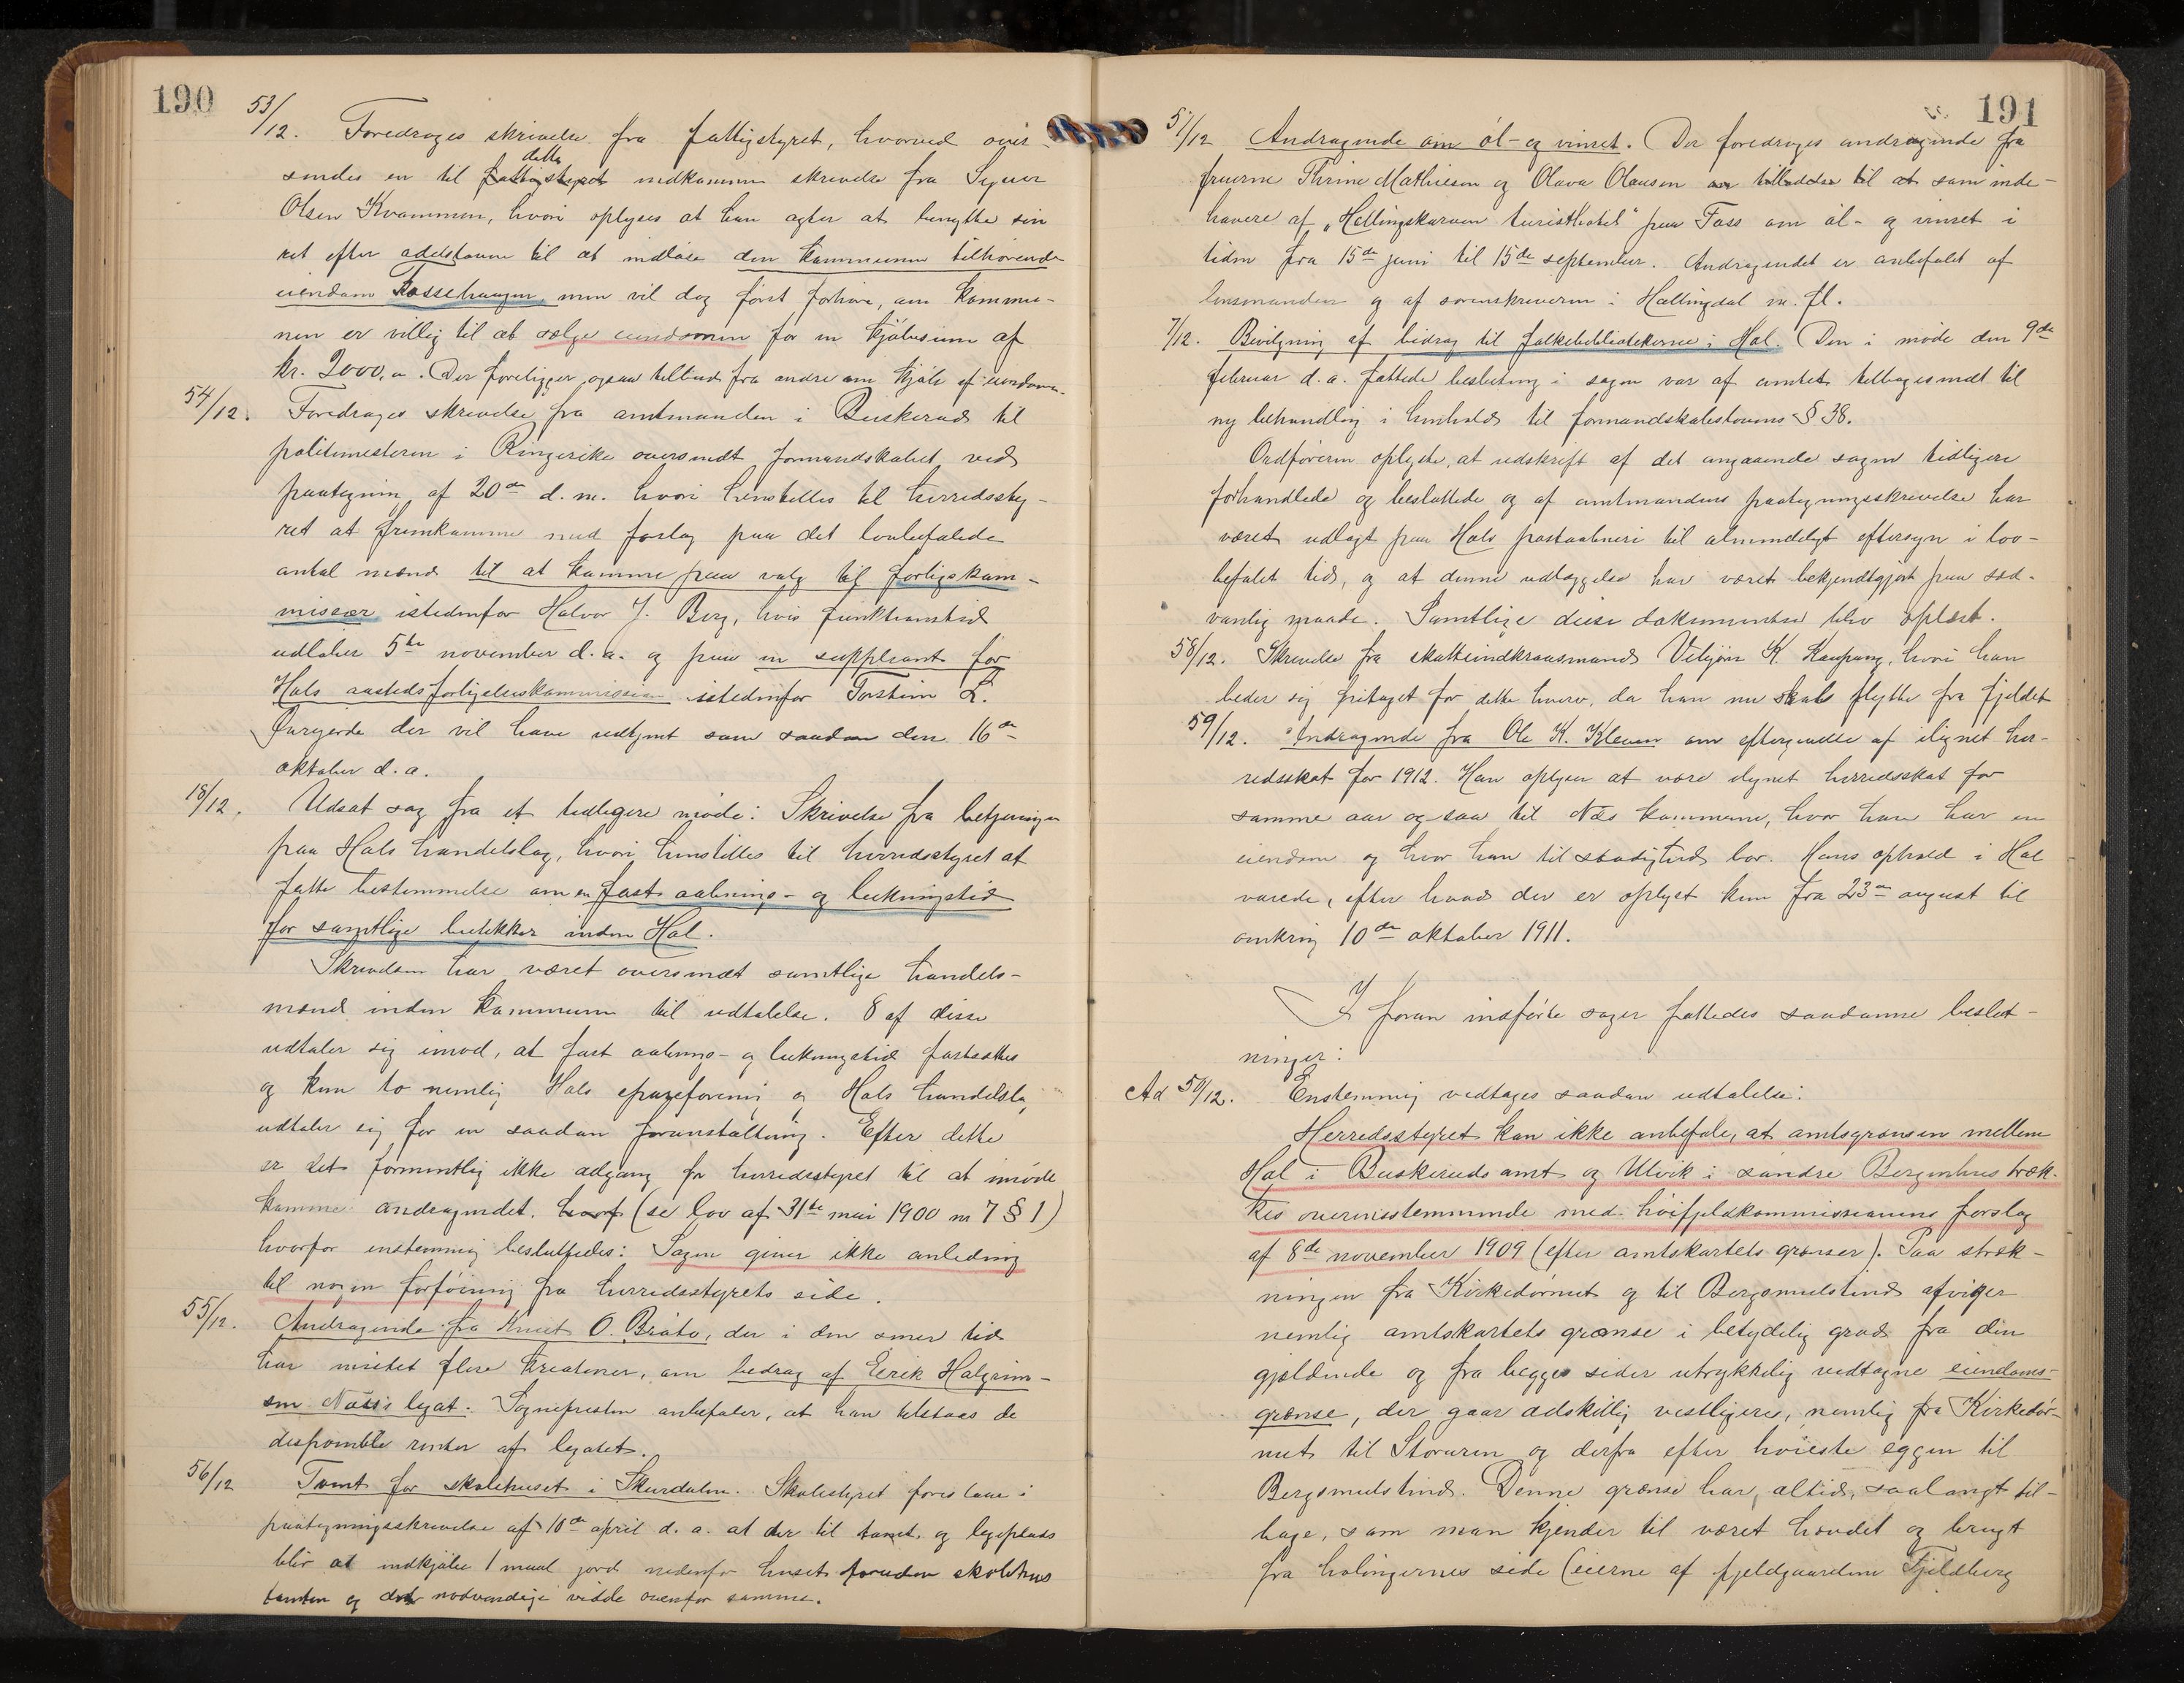 190
53/12. Foredrages skrivelse fra fattigstyret, hvorved over-
sendes en til fattigstyret dette indkommen skrivelse fra Syver
Olsen Kvammen, hvori oplyses at han agter at benytte sin
ret efter odelsloven til at indløse den kommunen tilhørende
eiendom Fossehaugen, men vil dog først forhøre, om kommu-
nen er villig til at sælge eiendommen for en kjøbesum af
kr. 2000,00. Der foreligger ogsaa tilbud fra andre om kjøb af eiendommen.
54/12. Foredrages skrivelse fra amtmanden i Buskerud til
politimesteren i Ringerike oversendt formandskabet ved
paategning af 20de d.m. hvori henstilles til herredssty-
ret at fremkomme med forslag paa det lovbefalede
antal mænd til at komme paa valg til forligskom-
missær istedenfor Halvor J. Berg, hvis funktionstid
udløber 5te november d.a. og paa en suppleant for
Hols aastedsforligelseskommission istedenfor Torstein L.
Øvregarde der vil have udtjent som saadan den 16de
oktober d.a.
18/12. Udsat sag fra et tidligere møde: Skrivelse fra betjeningen
paa Hols handelslag, hvori henstilles til herredsstyret at
fatte bestemmelse om en fast aabnings- og lukningstid
for samtlige butikker inden Hol.
Skrivelsen har været oversendt samtlige handels-
mænd inden kommunen til udtalelse. 8 af disse
udtaler sig imod, at fast aabnings- og lukningstid fastsættes
og kun to nemlig Hols forening og Hols handelslag
udtaler sig for en saadan foranstaltning. Efter dette
er det formentlig ikke adgang for herredsstyret til at imøde
komme andragendet. (se lov af 31te mai 1900 nr 7 § 1)
hvorfor enstemmig besluttedes: Sagen giver ikke anledning
til nogen forføining fra herredsstyrets side.
55/12. Andragende fra Knut O. Bråto, der i den senere tid
har mistet flere kreaturer, om bidrag af Eirik Halgrim-
sen Næss's legat. Sognepresten anbefaler, at han tilstaaes de
disponible renter af legatet.
56/12 Tomt for skolehuset i Skurdalen. Skolestyret foreslaar i
paategningsskrivelse af 10de april d.a. at der til tomt og legeplads
blir at indkjøbe 1 maal jord nedenfor huset foruden skolehus
tomten og den nødvendige vidde ovenfor samme.
191
57/12 Andragende om øl- og vinret. Der foredroges andragende fra
fruerne Thrine Mathiesen og Olava Olausen om tilladelse til at som inde-
havere af "Hallingskarven turisthotel" paa Foss om øl- og vinret i
tiden fra 15de juni til 15de september. Andragendet er anbefalet af
lensmanden og af sorenskriveren i Hallingdal m.fl.
7/12. Bevilgning af bidrag til folkebibliotekerne i Hol. Den i møde den 9de
februar d.a. fattede beslutning i sagen var af amtet tilbagesendt til
ny behandling i henhold til formandskabslovens § 38.
Ordføreren oplyste, at udskrift af det angaaende sagen tidligere
forhandlede og besluttede og af amtmandens paategningsskrivelse har
været udlagt paa Hols postaabneri til almindeligt eftersyn i lov-
befalet tid, og at denne udlæggelse har været bekjendtgjort paa sæd-
vanlig maade. Samtlige disse dokumenter blev oplæst.
58/12. Skrivelse fra skatteindkrævsmand Vebjørn K. Kaupang, hvori han
beder sig fritaget for dette hverv, da han nu skal flytte fra fjeldet
59/12. Andragende fra Ole K. Kleven om eftergivelse af ilignet her-
redsskat for 1912. Han oplyser at være ilignet herredsskat for
samme aar ogsaa til Næs kommune, hvor han har en
eiendom og hvor han til stadighed bor. Hans ophold i Hol
varede, efter hvad der er oplyst kun fra 23de august til
omkring 10de oktober 1911.
I foran indførte sager fattedes saadanne beslut-
ninger:
Ad 50/12. Enstemmig vedtages saadan udtalelse:
Herredsstyret kan ikke anbefale, at amtsgrænsen mellem
Hol i Buskeruds amt og Ulvik i søndre Bergenhus træk-
kes overensstemmende med høifjeldskommissionens forslag
af 8de november 1909 (efter amtskartets grænser). Paa stræk-
ningen fra Kirkedørnut og til Bergsmulstind afviger
nemlig amtskartets grænse i betydelig grad fra den
gjældende og fra begges sider utrykkelig vedtagne eiendoms-
grænse, der gaar adskillig vestligere, nemlig fra Kirkedør-
nut til Storuren og derfra efter høieste eggen til
Bergsmulstind. Denne grænse har, altid, saalangt til-
bage, som man kjender til været hævdet og brugt
fra holingernes side (eierne af fjeldgaardene Fjeldberg